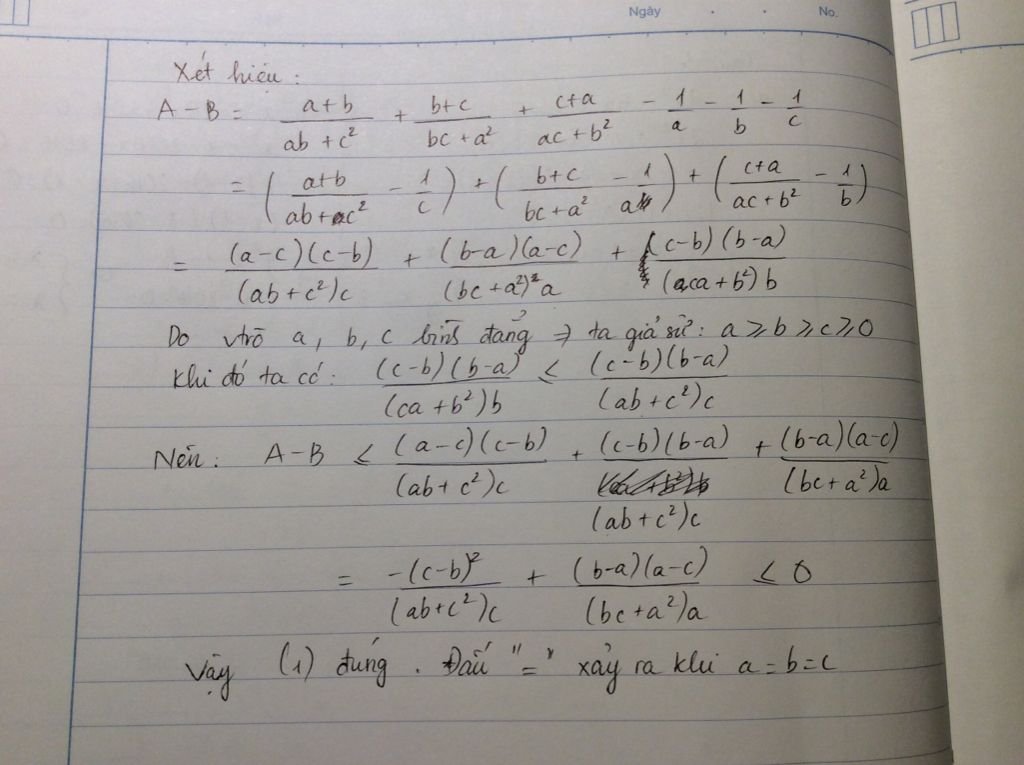 Ngày . . No.
Xét hiệu :
A - B = \frac{a+b}{ab+c²} + \frac{b+c}{bc+a²} + \frac{c+a}{ac+b²} - \frac{1}{a} - \frac{1}{b} - \frac{1}{c}
= ( \frac{a+b}{ab+c²} - \frac{1}{c} ) + ( \frac{b+c}{bc+a²} - \frac{1}{a} ) + ( \frac{c+a}{ac+b²} - \frac{1}{b} )
= \frac{(a-c)(c-b)}{(ab+c²)c} + \frac{(b-a)(a-c)}{(bc+a²)a} + \frac{(c-b)(b-a)}{(ca+b²)b}
Do vtrò a, b, c bình đẳng ⇒ ta giả sử : a ⩾ b ⩾ c ⩾ 0
Khi đó ta có : \frac{(c-b)(b-a)}{(ca+b²)b} ⩽ \frac{(c-b)(b-a)}{(ab+c²)c}
Nên : A-B ⩽ \frac{(a-c)(c-b)}{(ab+c²)c} + \frac{(c-b)(b-a)}{(ab+c²)c} + \frac{(b-a)(a-c)}{(bc+a²)a}
= \frac{-(c-b)²}{(ab+c²)c} + \frac{(b-a)(a-c)}{(bc+a²)a} ⩽ 0
Vậy (1) đúng . Dấu "=" xảy ra khi a = b = c